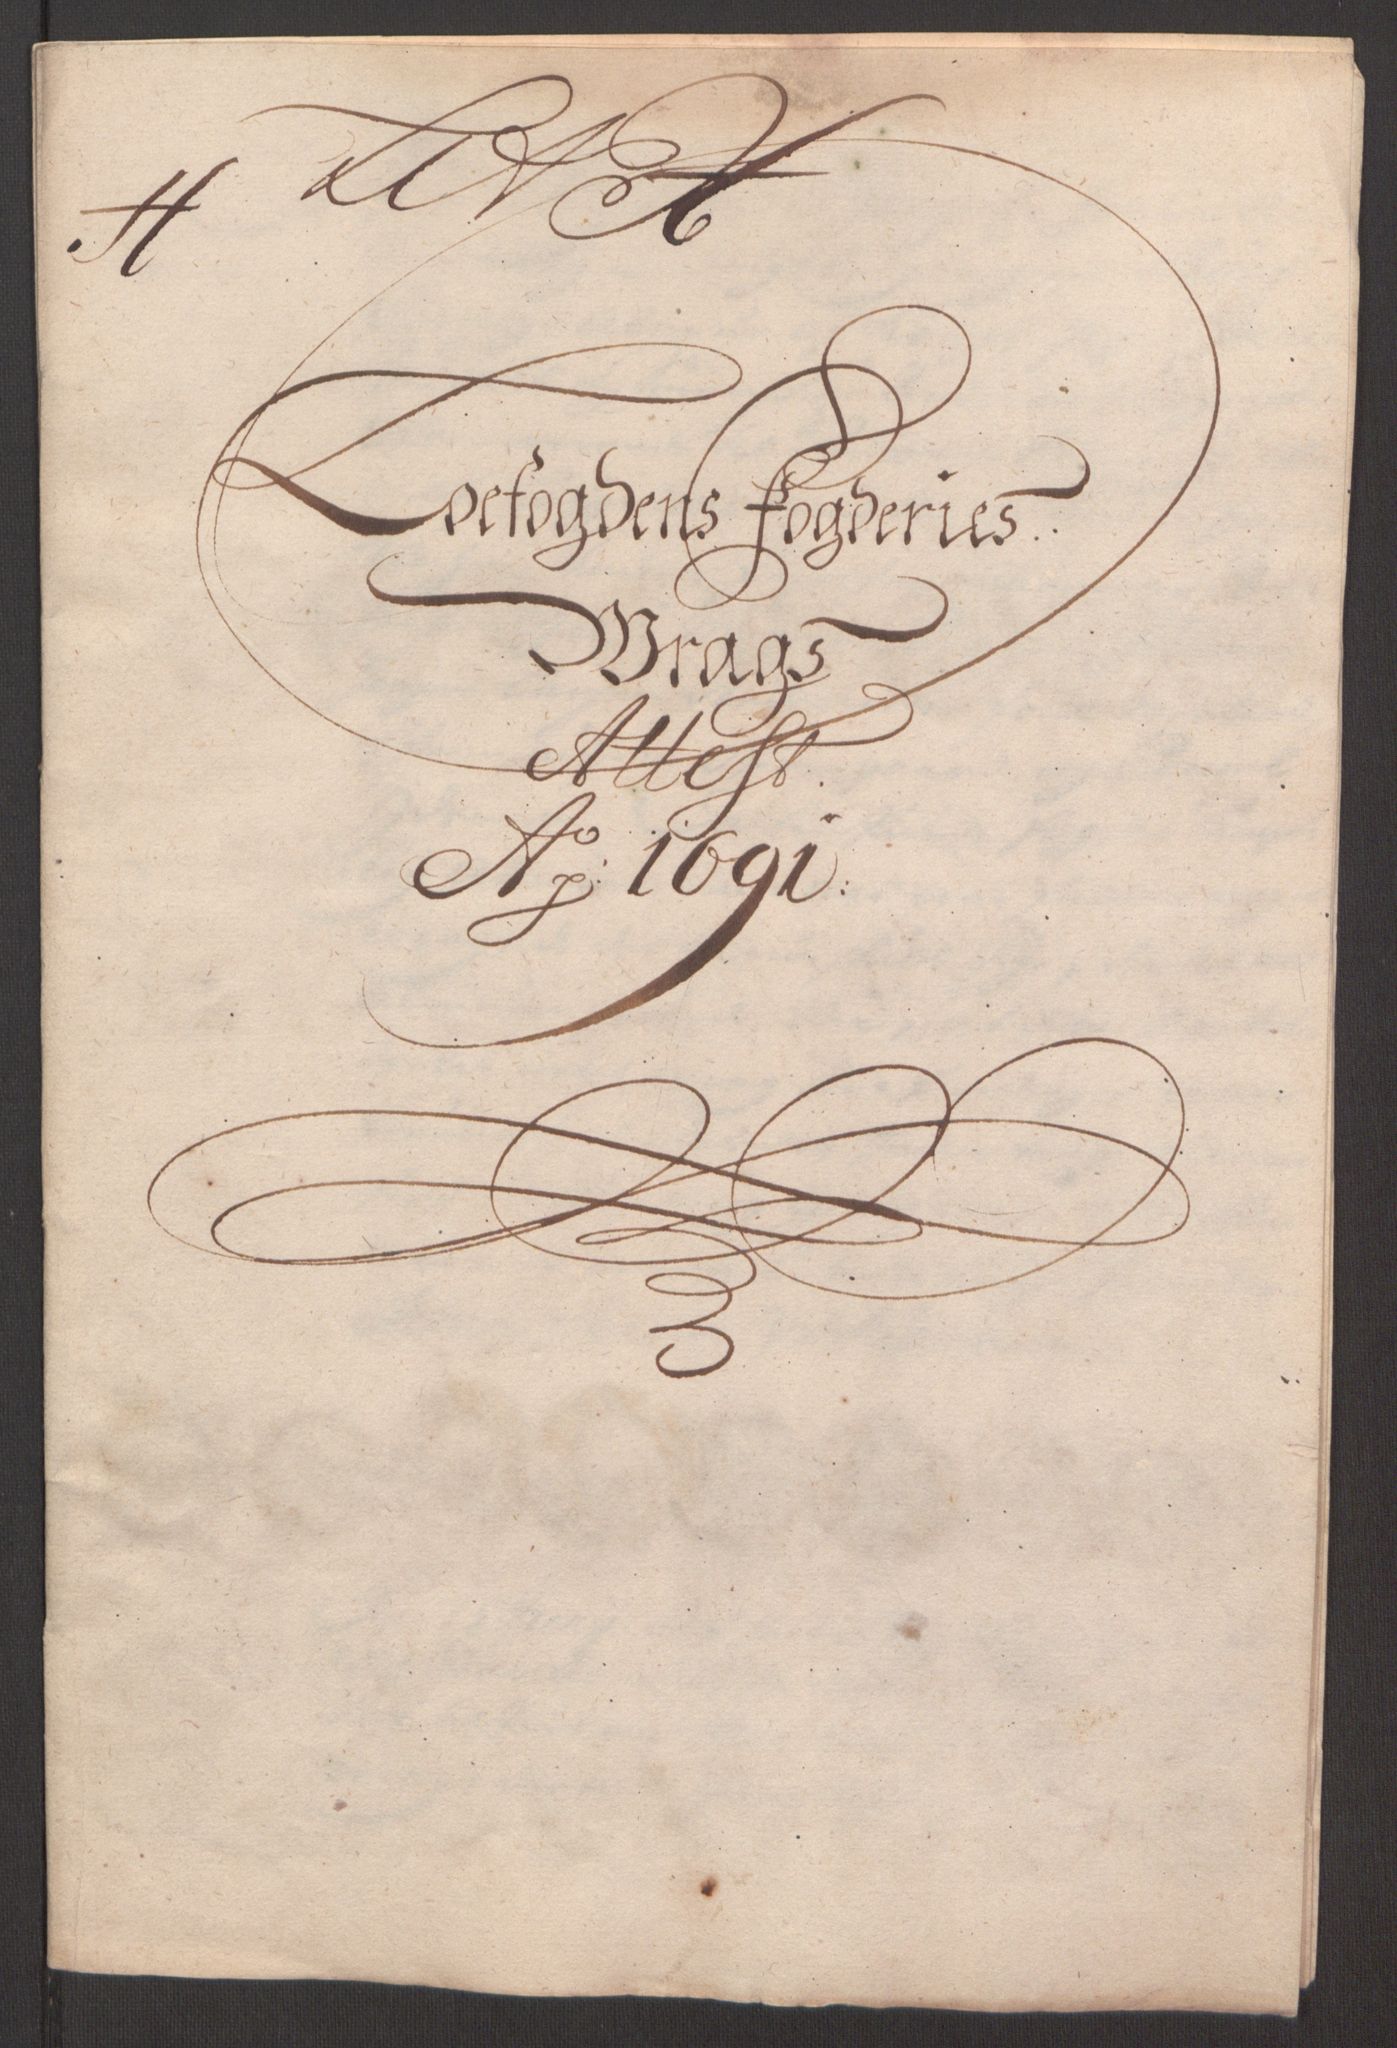 H
Lit H
Loefogdens Fogderies.
Vrags
Attest.
Ao. p: 1691: